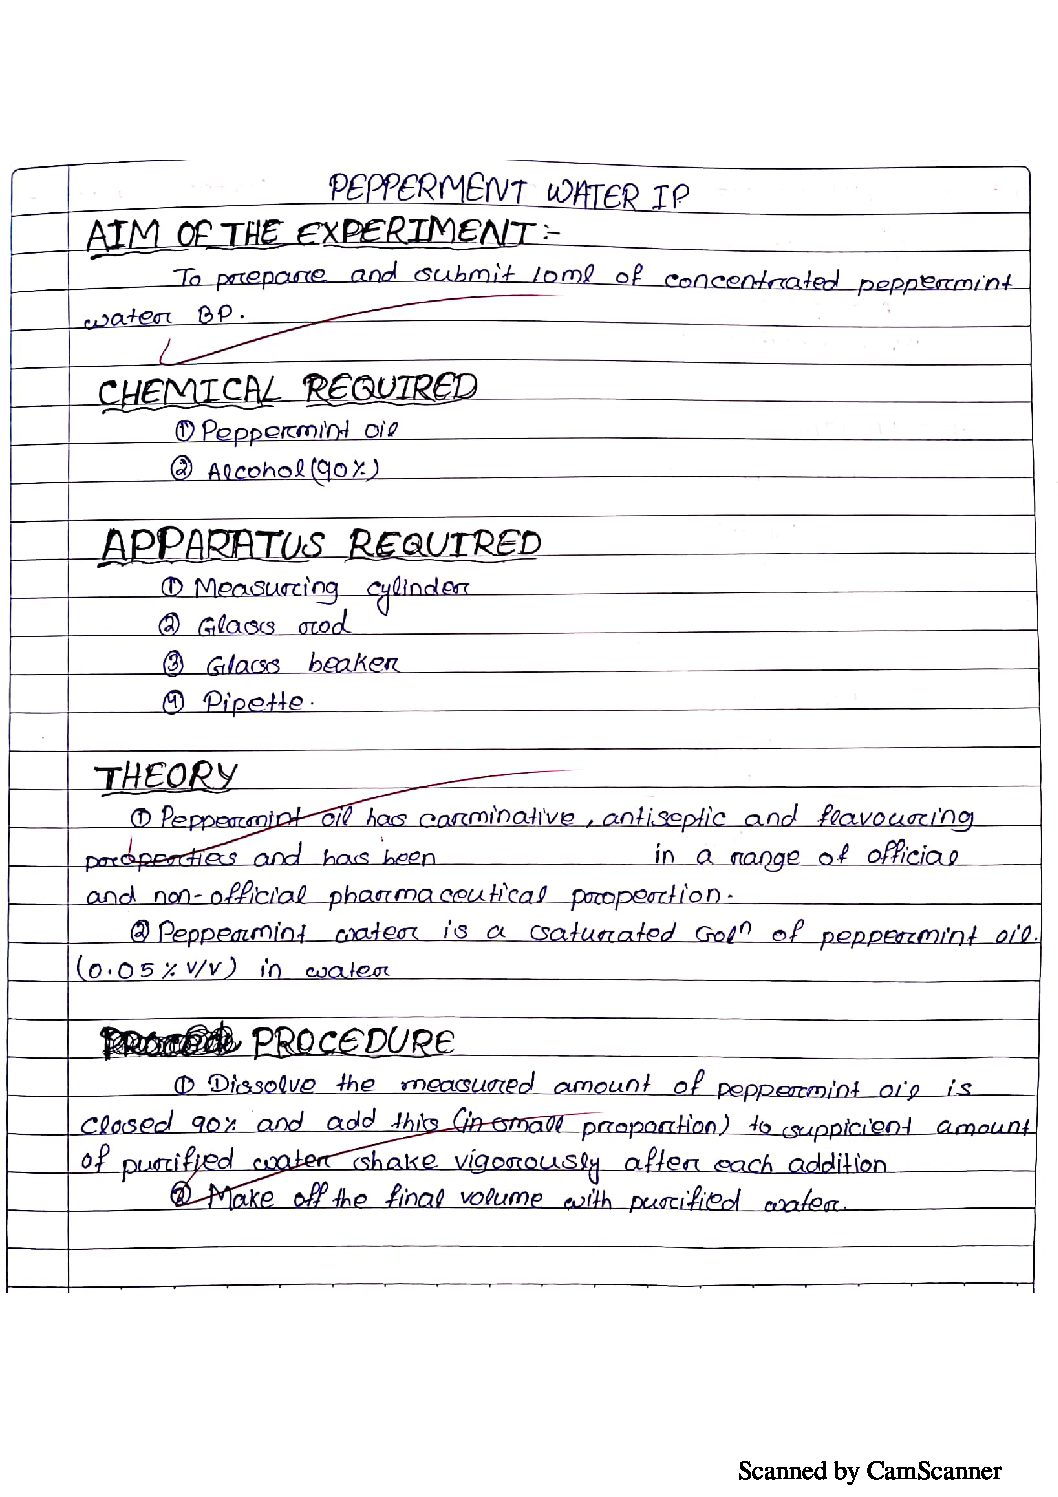 PEPPERMENT WATER IP
AIM OF THE EXPERIMENT:-
To prepare and submit 10ml of concentrated peppermint
water BP.
CHEMICAL REQUIRED
① Peppermint oil
② Alcohol (90%)
APPARATUS REQUIRED
① Measuring cylinder
② Glass rod
③ Glass beaker
④ Pipette.
THEORY
① Peppermint oil has carminative, antiseptic and flavouring
properties and has been in a range of official
and non-official pharmaceutical proportion.
② Peppermint water is a saturated Solⁿ of peppermint oil.
(0.05% V/V) in water
PROCEDURE
① Dissolve the measured amount of peppermint oil is
closed 90% and add this (in small proportion) to suppicient amount
of purified water shake vigorously after each addition
② Make off the final volume with purified water.
Scanned by CamScanner